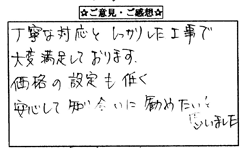 ☆ご意見・ご感想☆
丁寧な対応としっかりした工事で
大変満足しております。
価格の設定も低く
安心して知り合いに勧めたいと
思いました